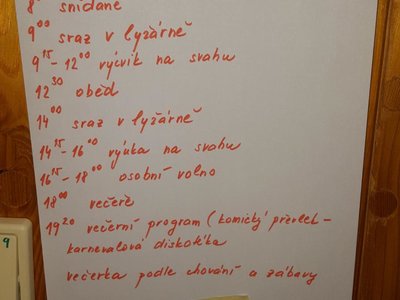 8⁰⁰ snídaně
9⁰⁰ sraz v lyžárně
9¹⁵-12⁰⁰ výcvik na svahu
12³⁰ oběd
14⁰⁰ sraz v lyžárně
14¹⁵-16⁰⁰ výuka na svahu
16¹⁵-18⁰⁰ osobní volno
18⁰⁰ večeře
19²⁰ večerní program (komický převlek-
karnevalová diskotéka
večerka podle chování a zábavy
9